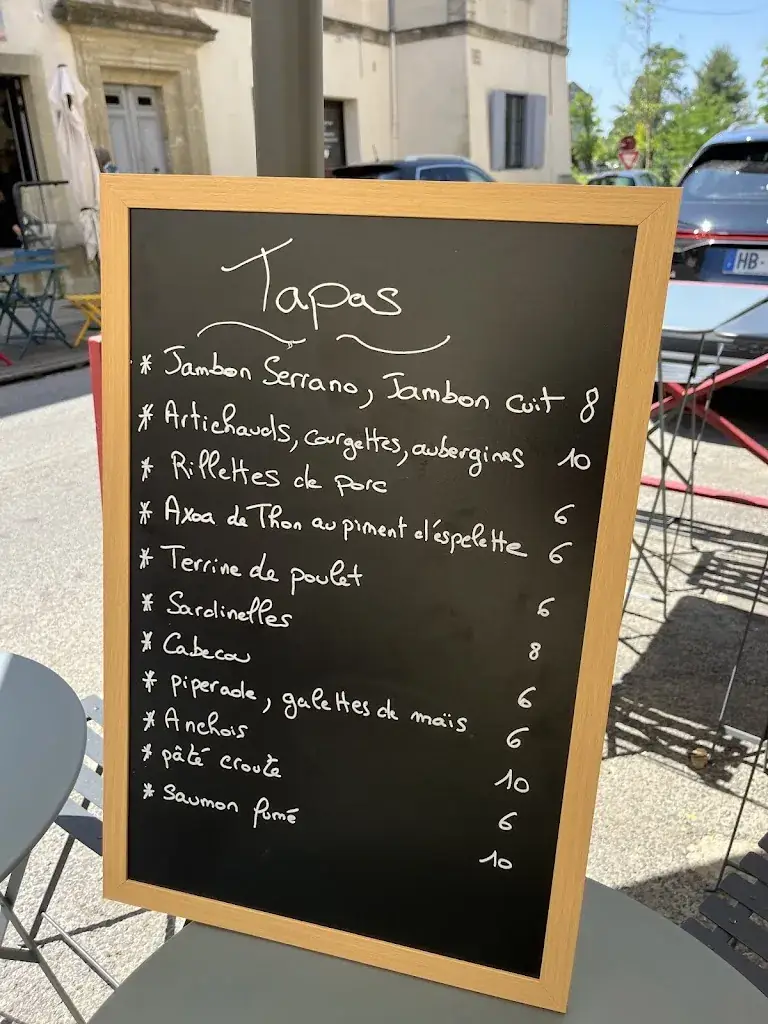 Tapas
* Jambon Serrano, Jambon cuit 8
* Artichauds, courgettes, aubergines 10
* Rillettes de porc 6
* Axoa de Thon au piment d'éspelette 6
* Terrine de poulet 6
* Sardinelles 8
* Cabecou 6
* piperade, galettes de maïs 6
* Anchois 10
* pâté croute 6
* Saumon fumé 10
HB-